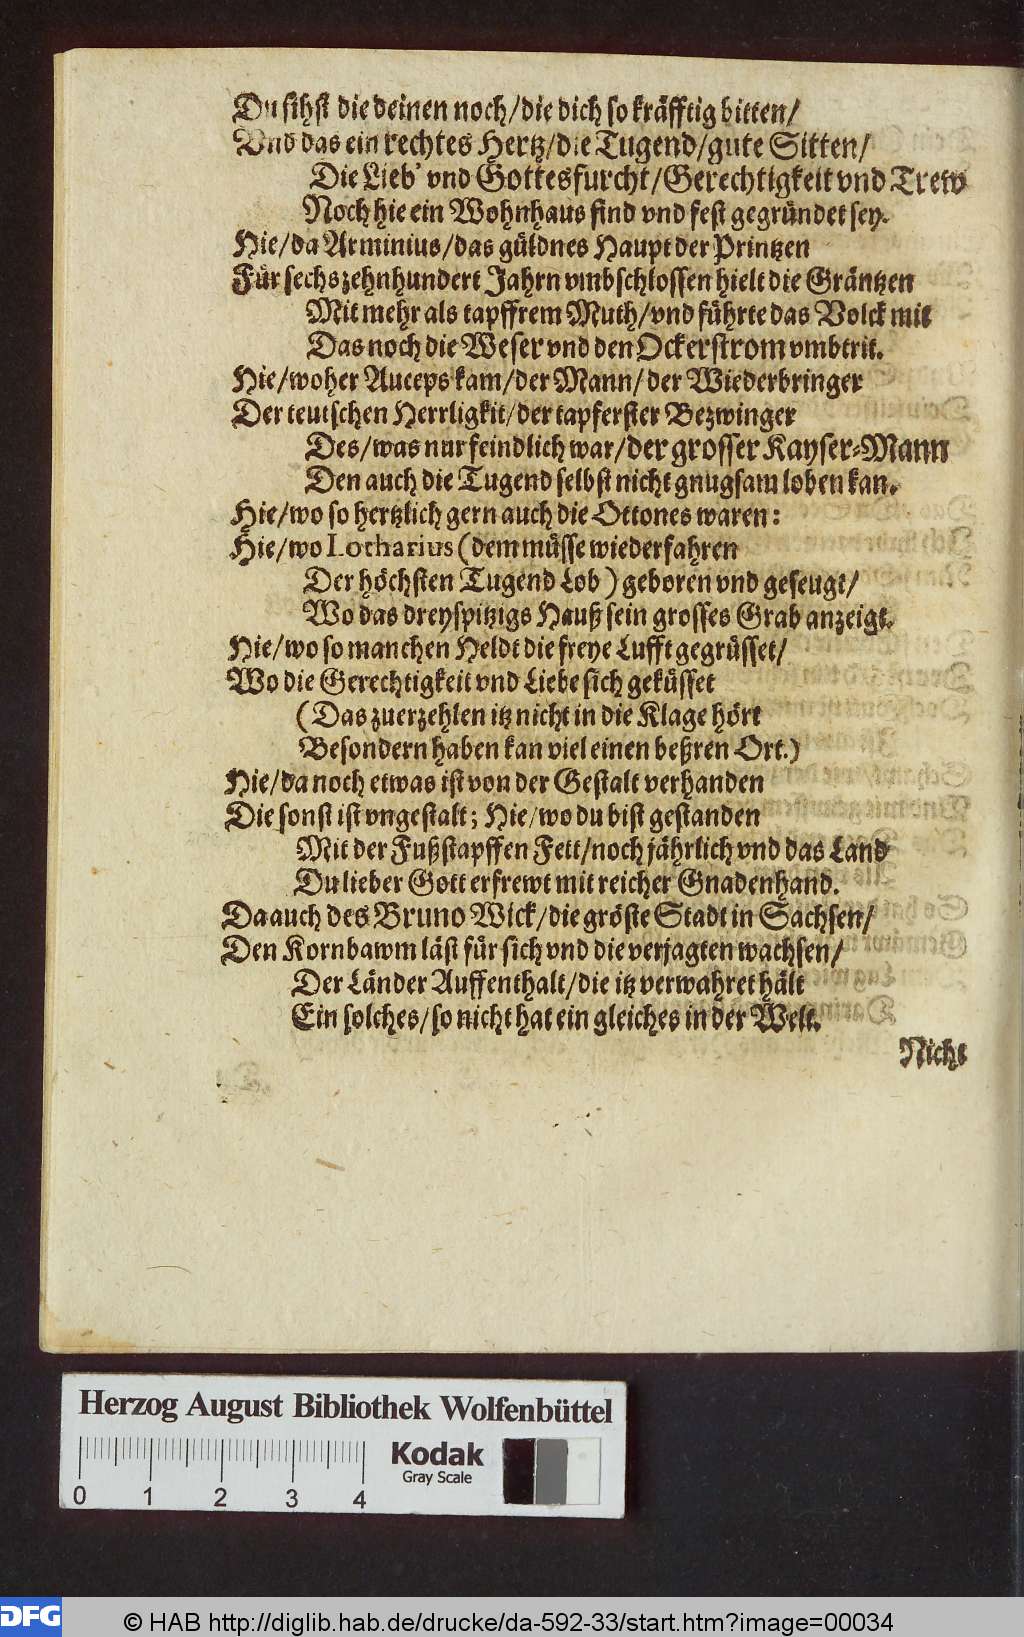 Du sihst die deinen noch/die dich so kräfftig bitten/
Vnd das ein rechtes Hertz/die Tugend/gute Sitten/
Die Lieb' vnd Gottesfurcht/Gerechtigkeit vnd Trew
Noch hie ein Wohnhaus find vnd fest gegründet sey.
Hie/da Arminius/das güldnes Haupt der Printzen
Für sechszehnhundert Jahrn vmbschlossen hielt die Gräntzen
Mit mehr als tapffrem Muth/vnd führte das Volck mit
Das noch die Weser vnd den Ockerstrom vmbtrit.
Hie/woher Auceps kam/der Mann/der Wiederbringer
Der teutschen Herrligkit/der tapferster Bezwinger
Des/was nur feindlich war/der grosser Kayser-Mann
Den auch die Tugend selbst nicht gnugsam loben kan.
Hie/wo so hertzlich gern auch die Ottones waren:
Hie/wo Lotharius (dem müsse wiederfahren
Der höchsten Tugend Lob) geboren vnd geseugt/
Wo das dreyspitzigs Hauß sein grosses Grab anzeigt.
Hie/wo so manchen Heldt die freye Lufft gegrüsset/
Wo die Gerechtigkeit vnd Liebe sich geküsset
(Das zuerzehlen itz nicht in die Klage hört
Besondern haben kan viel einen beßren Ort.)
Hie/da noch etwas ist von der Gestalt verhanden
Die sonst ist vngestalt; Hie/wo du bist gestanden
Mit der Fußstapffen Fett/noch jährlich vnd das Land
Du lieber Gott erfrewt mit reicher Gnadenhand.
Da auch des Bruno Wick/die gröste Stadt in Sachsen/
Den Kornbawm läst für sich vnd die verjagten wachsen/
Der Länder Auffenthalt/die itz verwahret hält
Ein solches/so nicht hat ein gleiches in der Welt.
Nicht
Herzog August Bibliothek Wolfenbüttel
Kodak
Gray Scale
0 1 2 3 4
DFG
© HAB http://diglib.hab.de/drucke/da-592-33/start.htm?image=00034